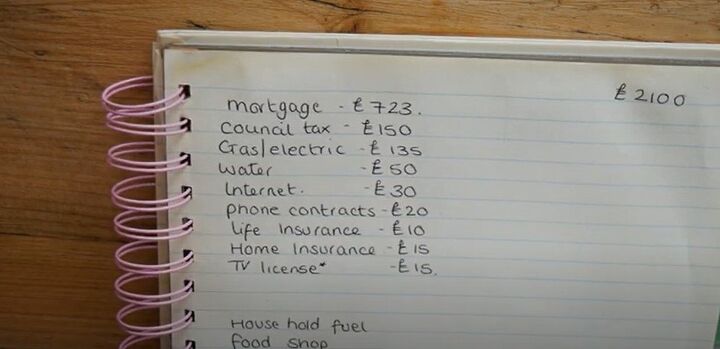 £2100
mortgage - £723.
Council tax - £150
Gas/electric - £135
Water - £50
Internet. - £30
phone contracts - £20
Life Insurance - £10
Home Insurance - £15
TV license* - £15.
House hold fuel
food shop